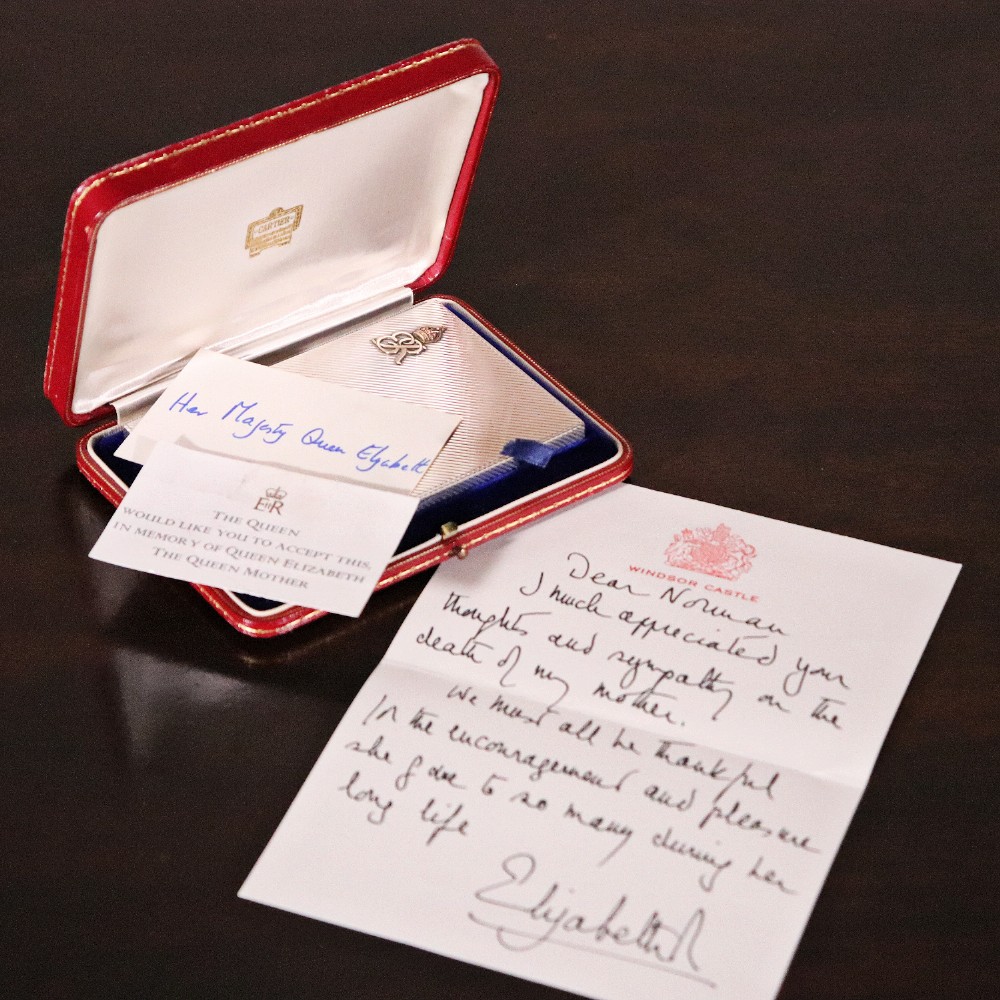 CARTIER
Her Majesty Queen Elizabeth
EIIR
THE QUEEN
WOULD LIKE YOU TO ACCEPT THIS,
IN MEMORY OF QUEEN ELIZABETH
THE QUEEN MOTHER
WINDSOR CASTLE
Dear Norman
I much appreciated your
thoughts and sympathy on the
death of my mother.
We must all be thankful
for the encouragement and pleasure
she gave to so many during her
long life
Elizabeth R